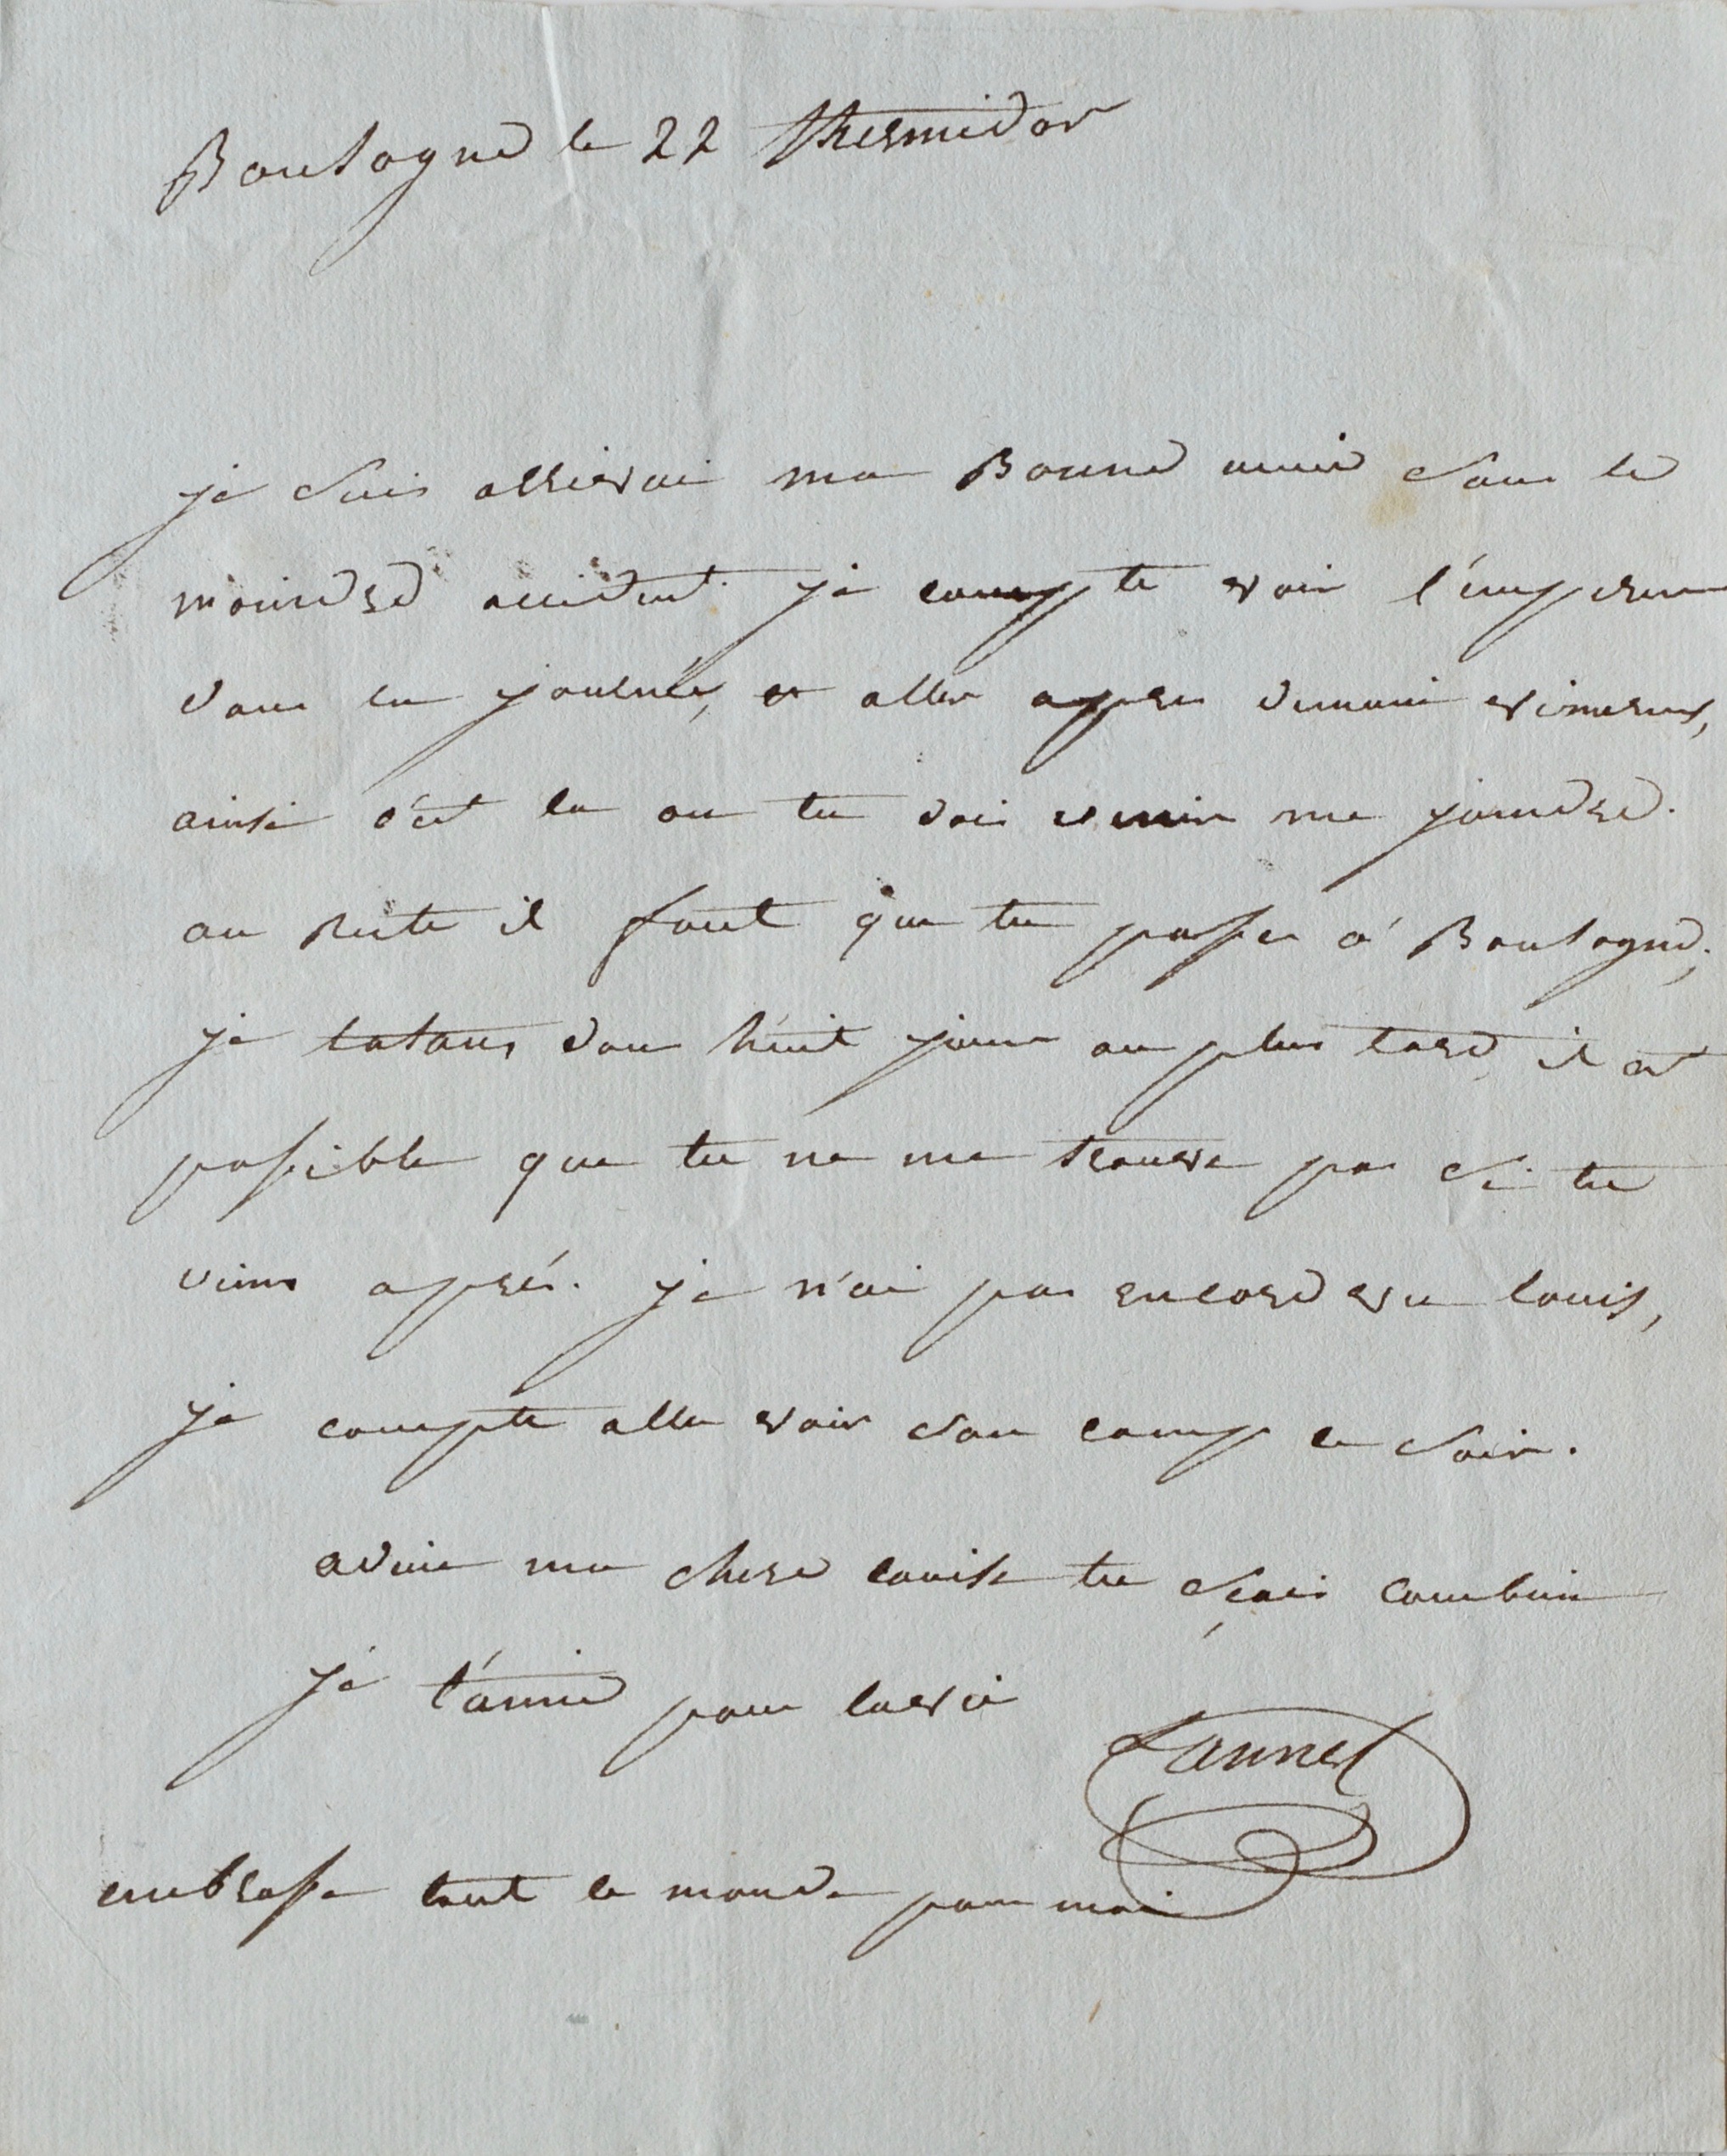 Boulogne le 22 thermidor
je suis arrivai ma Bonne amie sans le
moindre accident. je compte voir l'empereur
dans la journée, et aller apres demain vimereux,
ainsi c'est la ou tu doi venir me joindre.
au reste il faut que tu passes a Boulogne;
je tatans dans huit jours au plus tard, il est
possible que tu ne me trouve pas si tu
viens aprés. je n'ai pas encore vu louis,
je compte aller voir son camp ce soir.
adieu ma chere louise tu sçais combien
je t'aime pour la vie
Lannes
embrasse tout le monde pour moi